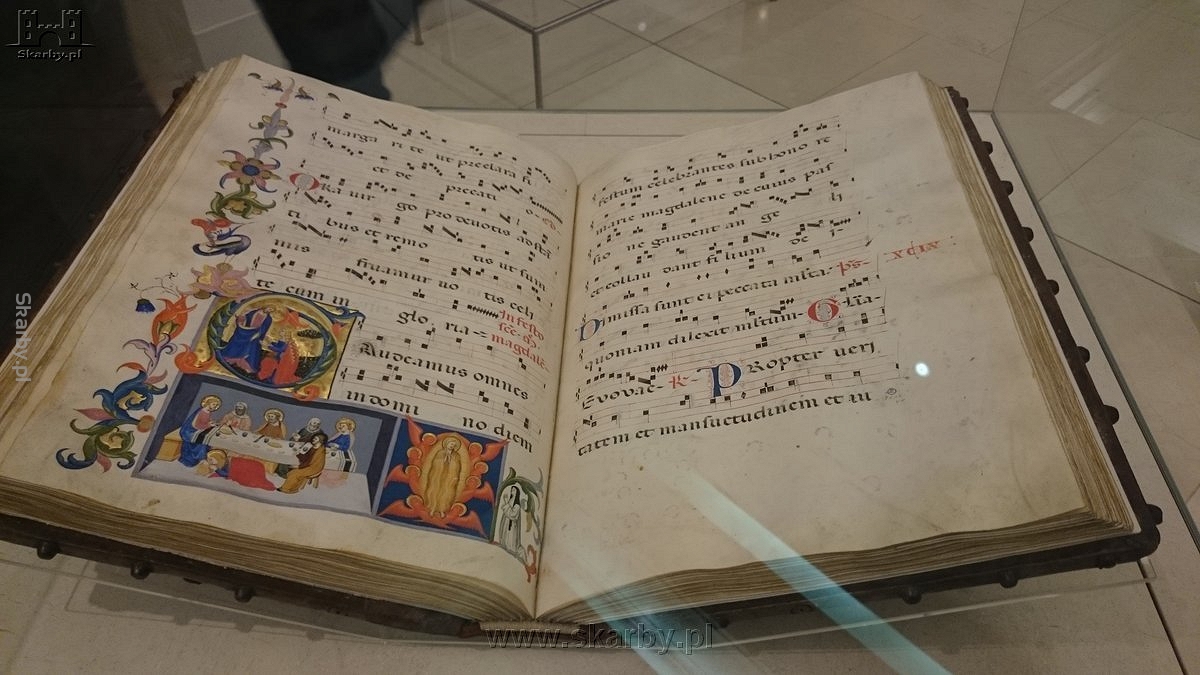 Skarby.pl
marga ri te ut preclara si
et de precati o-
Ora uir go pro deuotis ad sta
ti bus et remo tis ut sum
mis fruamur uo tis celi
te cum in glo ria-
In festo
magdale
Gaudeamus omnes
in domi no diem
festum celebrantes sub hono re
marie magdalene de cuius pas
sio ne gaudent an ge li
et collau dant fi lium de i
Dimissa sunt ei peccata mlta- ps- xcix
quoniam dilexit mltum- Glia-
Evovae- Propter ueri
tatem et mansuetudinem et iu
Skarby.pl
www.skarby.pl